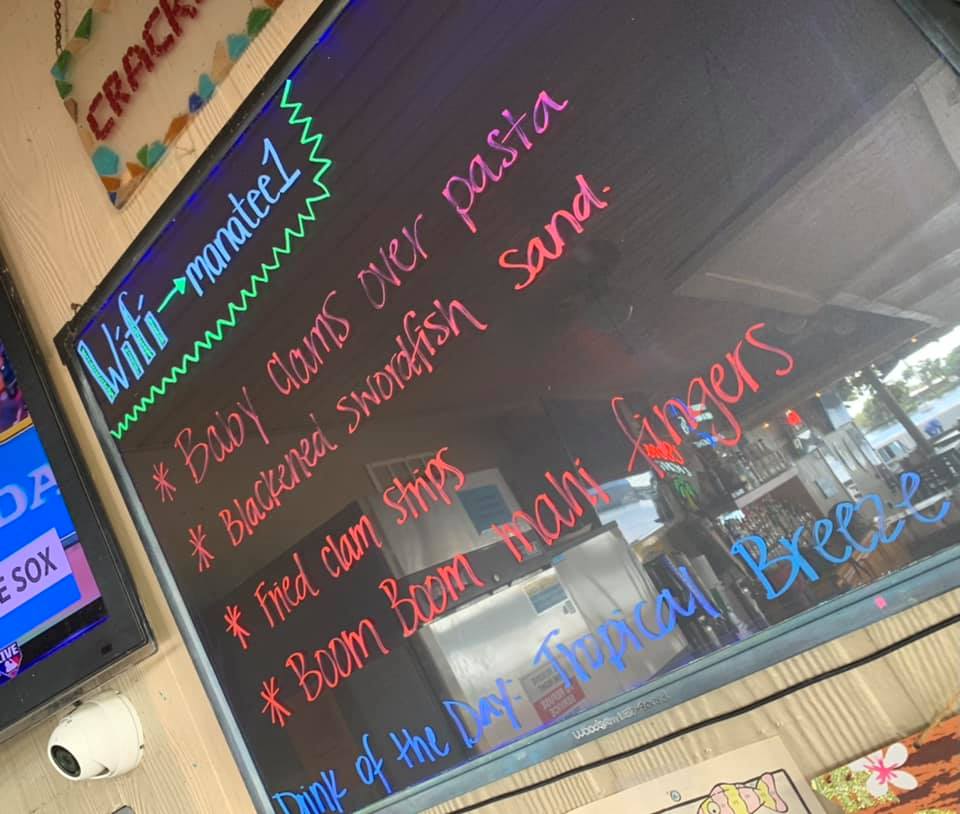 CRACK
Wifi → manatee1
* Baby clams over pasta
* Blackened swordfish sand.
* Fried clam strips
* Boom Boom mahi fingers
Drink of the Day: Tropical Breeze
DA
E SOX
LIVE